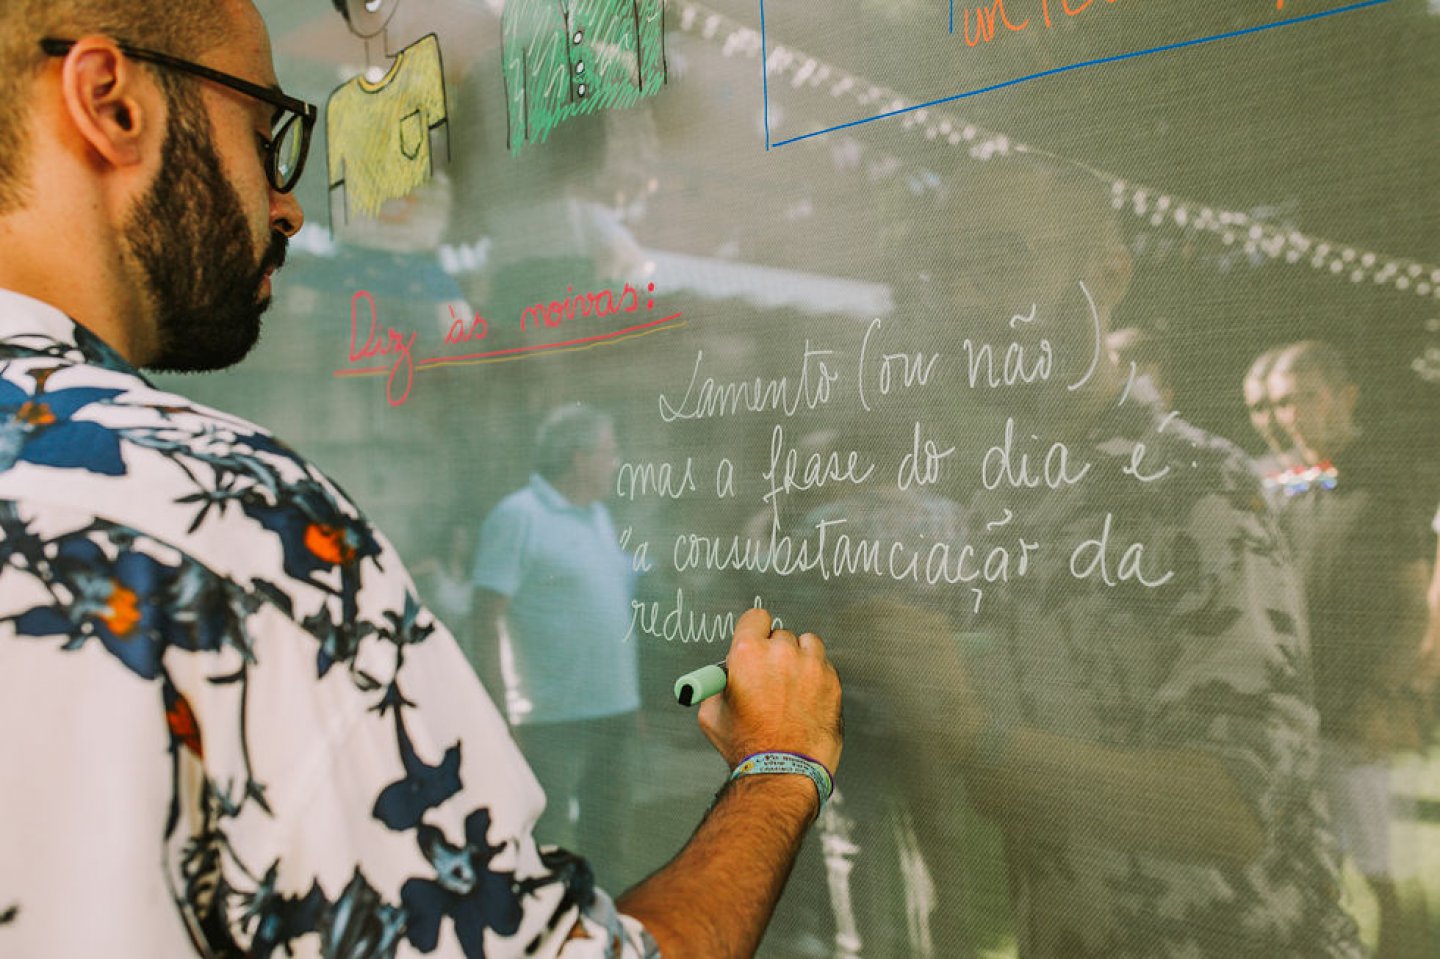 Diz às noivas:
Lamento (ou não),
mas a frase do dia é:
"a consubstanciação da
redund